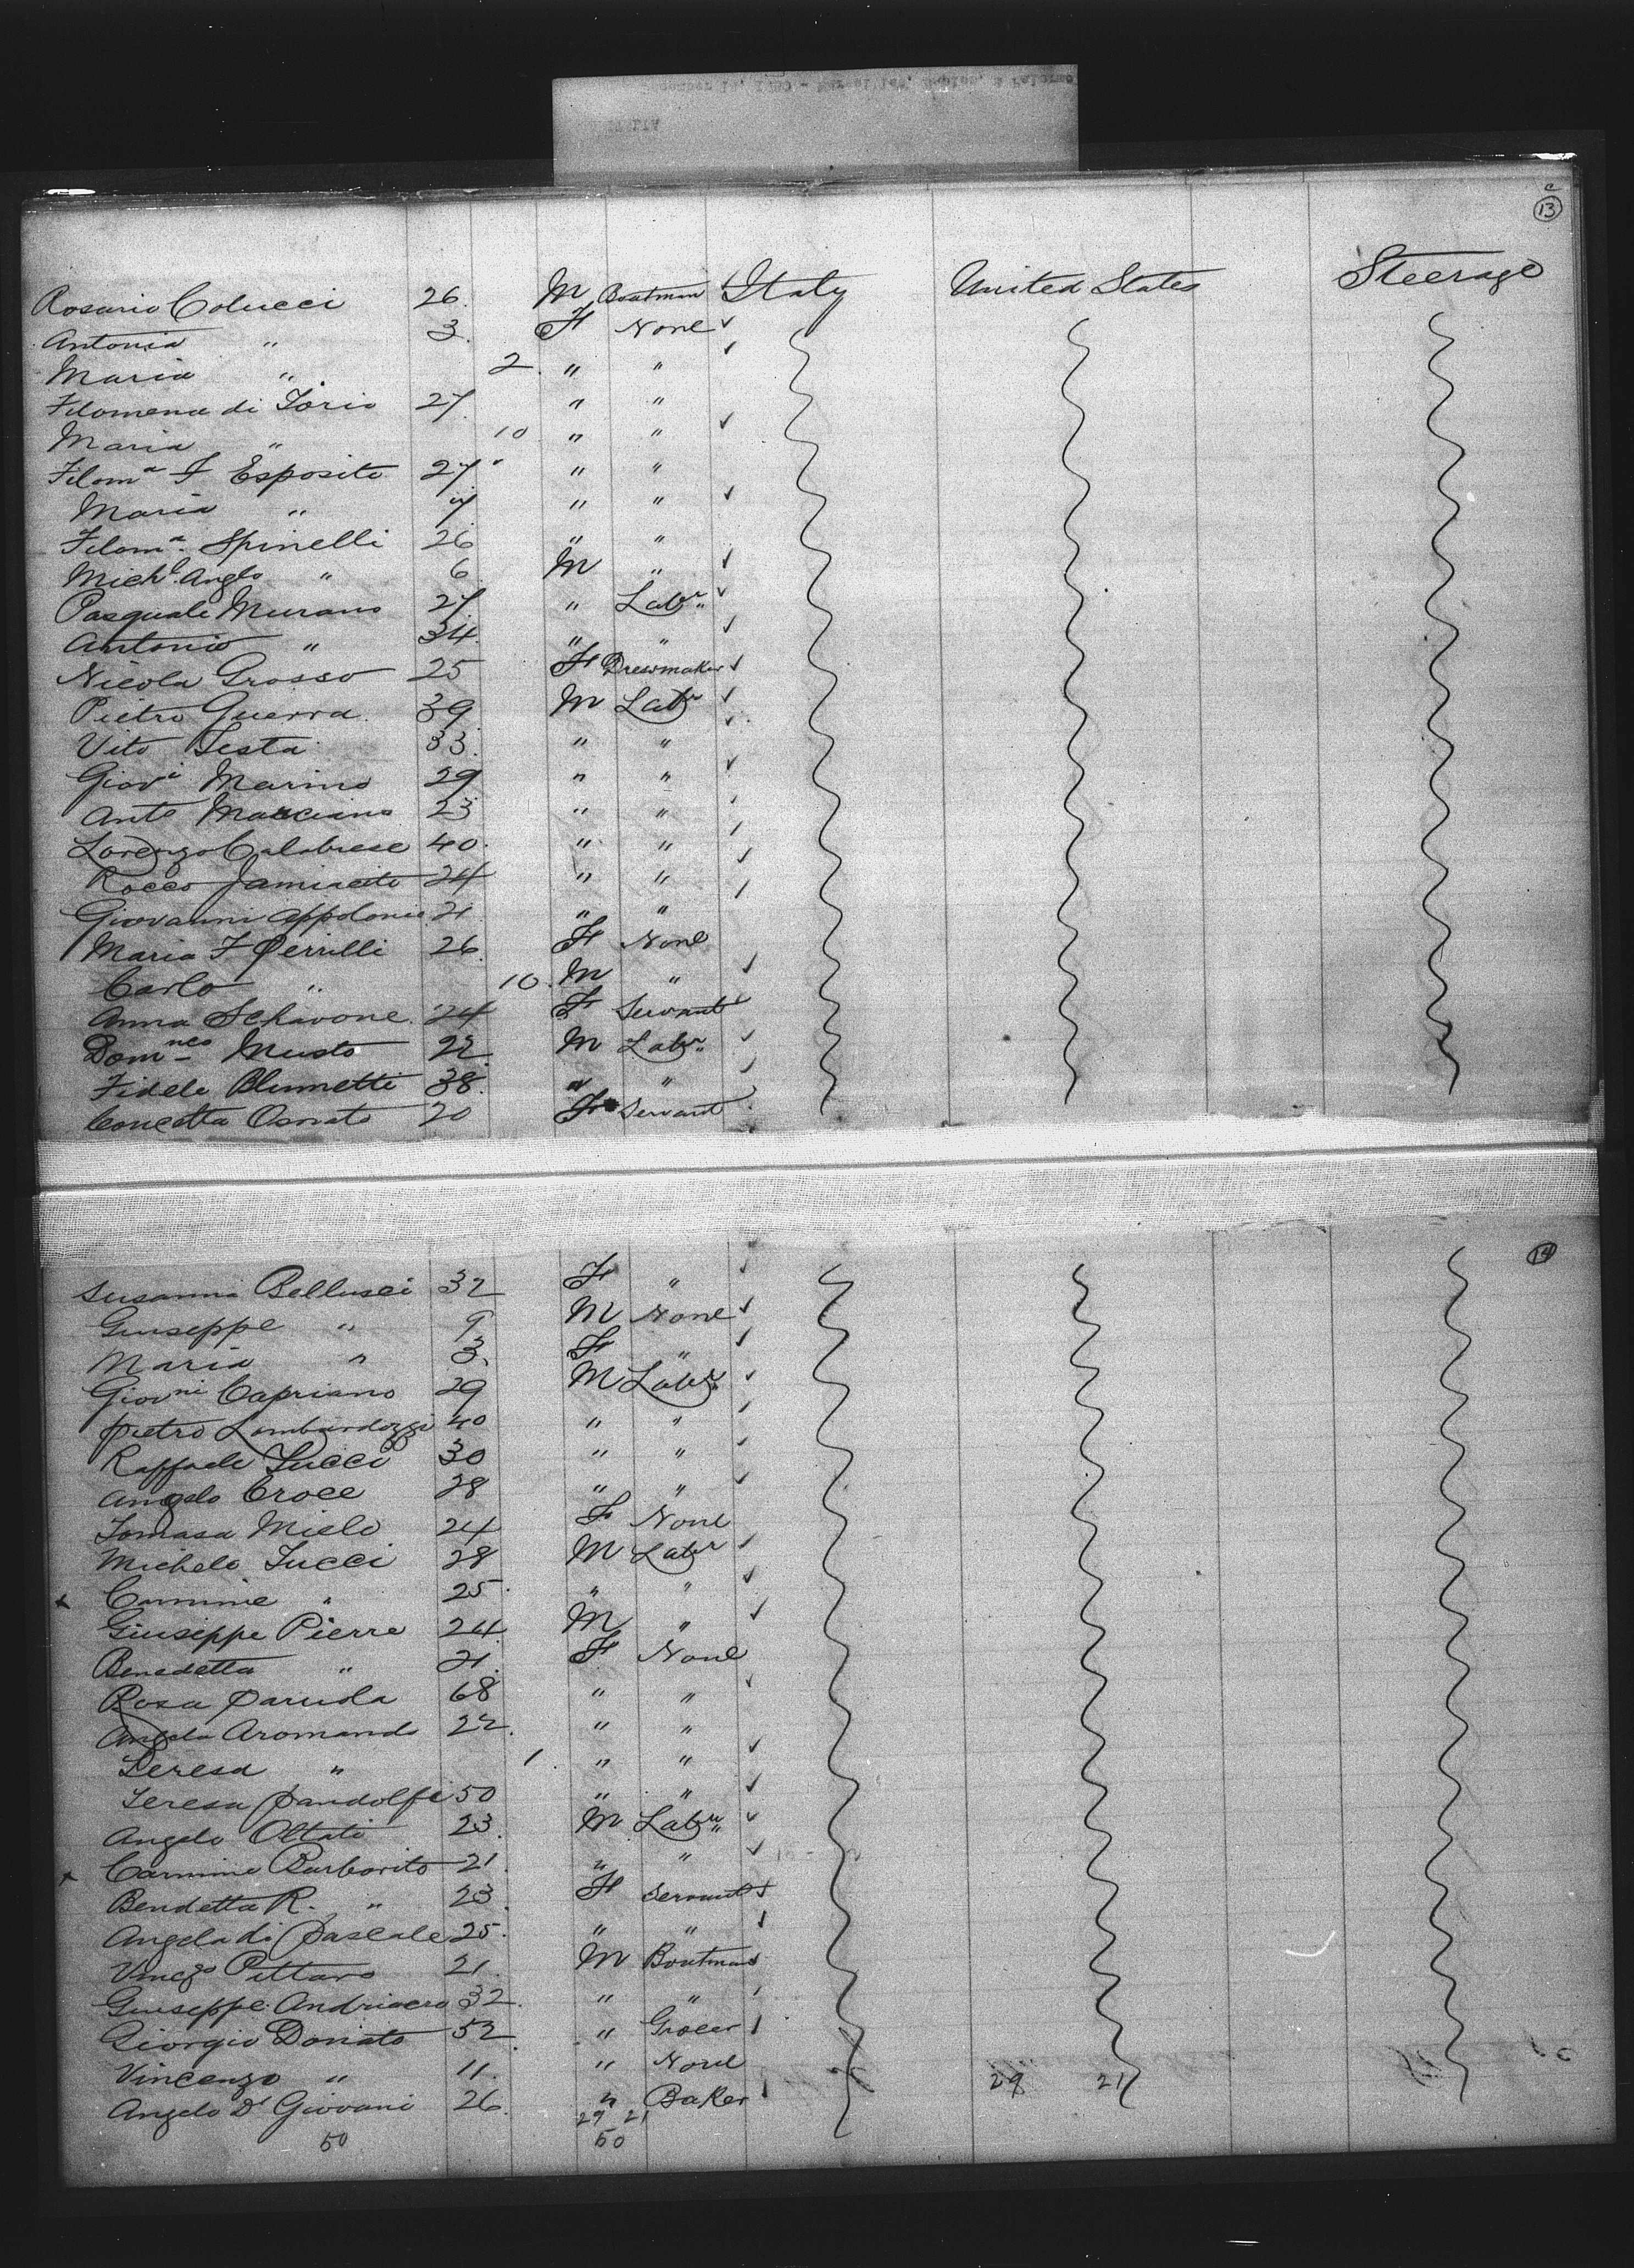 c
13
Rosario Colucci 26. M Boatman Italy United States Steerage
Antonia " 3. F None
Maria " 2. " "
Filomena di Iorio 27. " "
Maria " 10 " "
Filomᵃ F Esposito 27. " "
Maria " 4 " "
Filomᵃ Spinelli 26 " "
Michˡ Anglo " 6 M "
Pasquale Murano 27. " Labʳ
Antonio " 34. " "
Nicola Grosso 25 F Dressmaker
Pietro Guerra 39 M Labʳ
Vito Testa 33. " "
Giovⁱ Marino 29 " "
Antᵒ Marciano 23 " "
Lorenzo Calabrese 40. " "
Rocco Jamiaceto 24 " "
Giovanni Appolonio 21 " "
Maria F Perrilli 26. F None
Carlo " 10. M "
Anna Schavone. 24 F Servant
Domⁿᶜᵒ Musto 22 M Labʳ
Fidele Blumetti 38. " "
Concetta Osnato 20 F Servant
14
Susanna Bellusci 32 F "
Giuseppe " 9 M None
Maria " 3. F "
Giovⁿⁱ Capriano 29 M Labʳ
Pietro Lombardozzi 40 " "
Raffaele Tucci 30 " "
Angelo Croce 28 " "
Tomasa Miele 24 F None
Michele Tucci 28 M Labʳ
x Carmine " 25. " "
Giuseppe Pierre 24 M "
Benedetta " 21. F None
Rosa 68 " "
Angela Aromando 22. " "
Teresa " 1. " "
Teresa Pandolfi 50 " "
Angelo Oltati 23. M Labʳ
x Carmine Barbarito 21. " "
Bendetta R. " 23. F Servant
Angela di Pascale 25. " "
Vincᶻᵒ Pittaro 21. M Boatman
Giuseppe Andriacro 32. " "
Giorgio Donato 52. " Grocer
Vincenzo " 11. " None 29 21
Angelo Dⁱ Giovani 26. " Baker
29 21
50 50